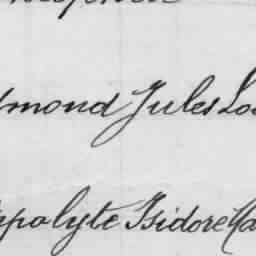 mond Jules Lo
polyte Isidore Ma